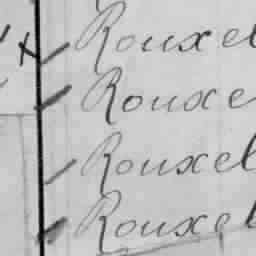 Rouxel
Rouxe
Rouxel
Rouxel